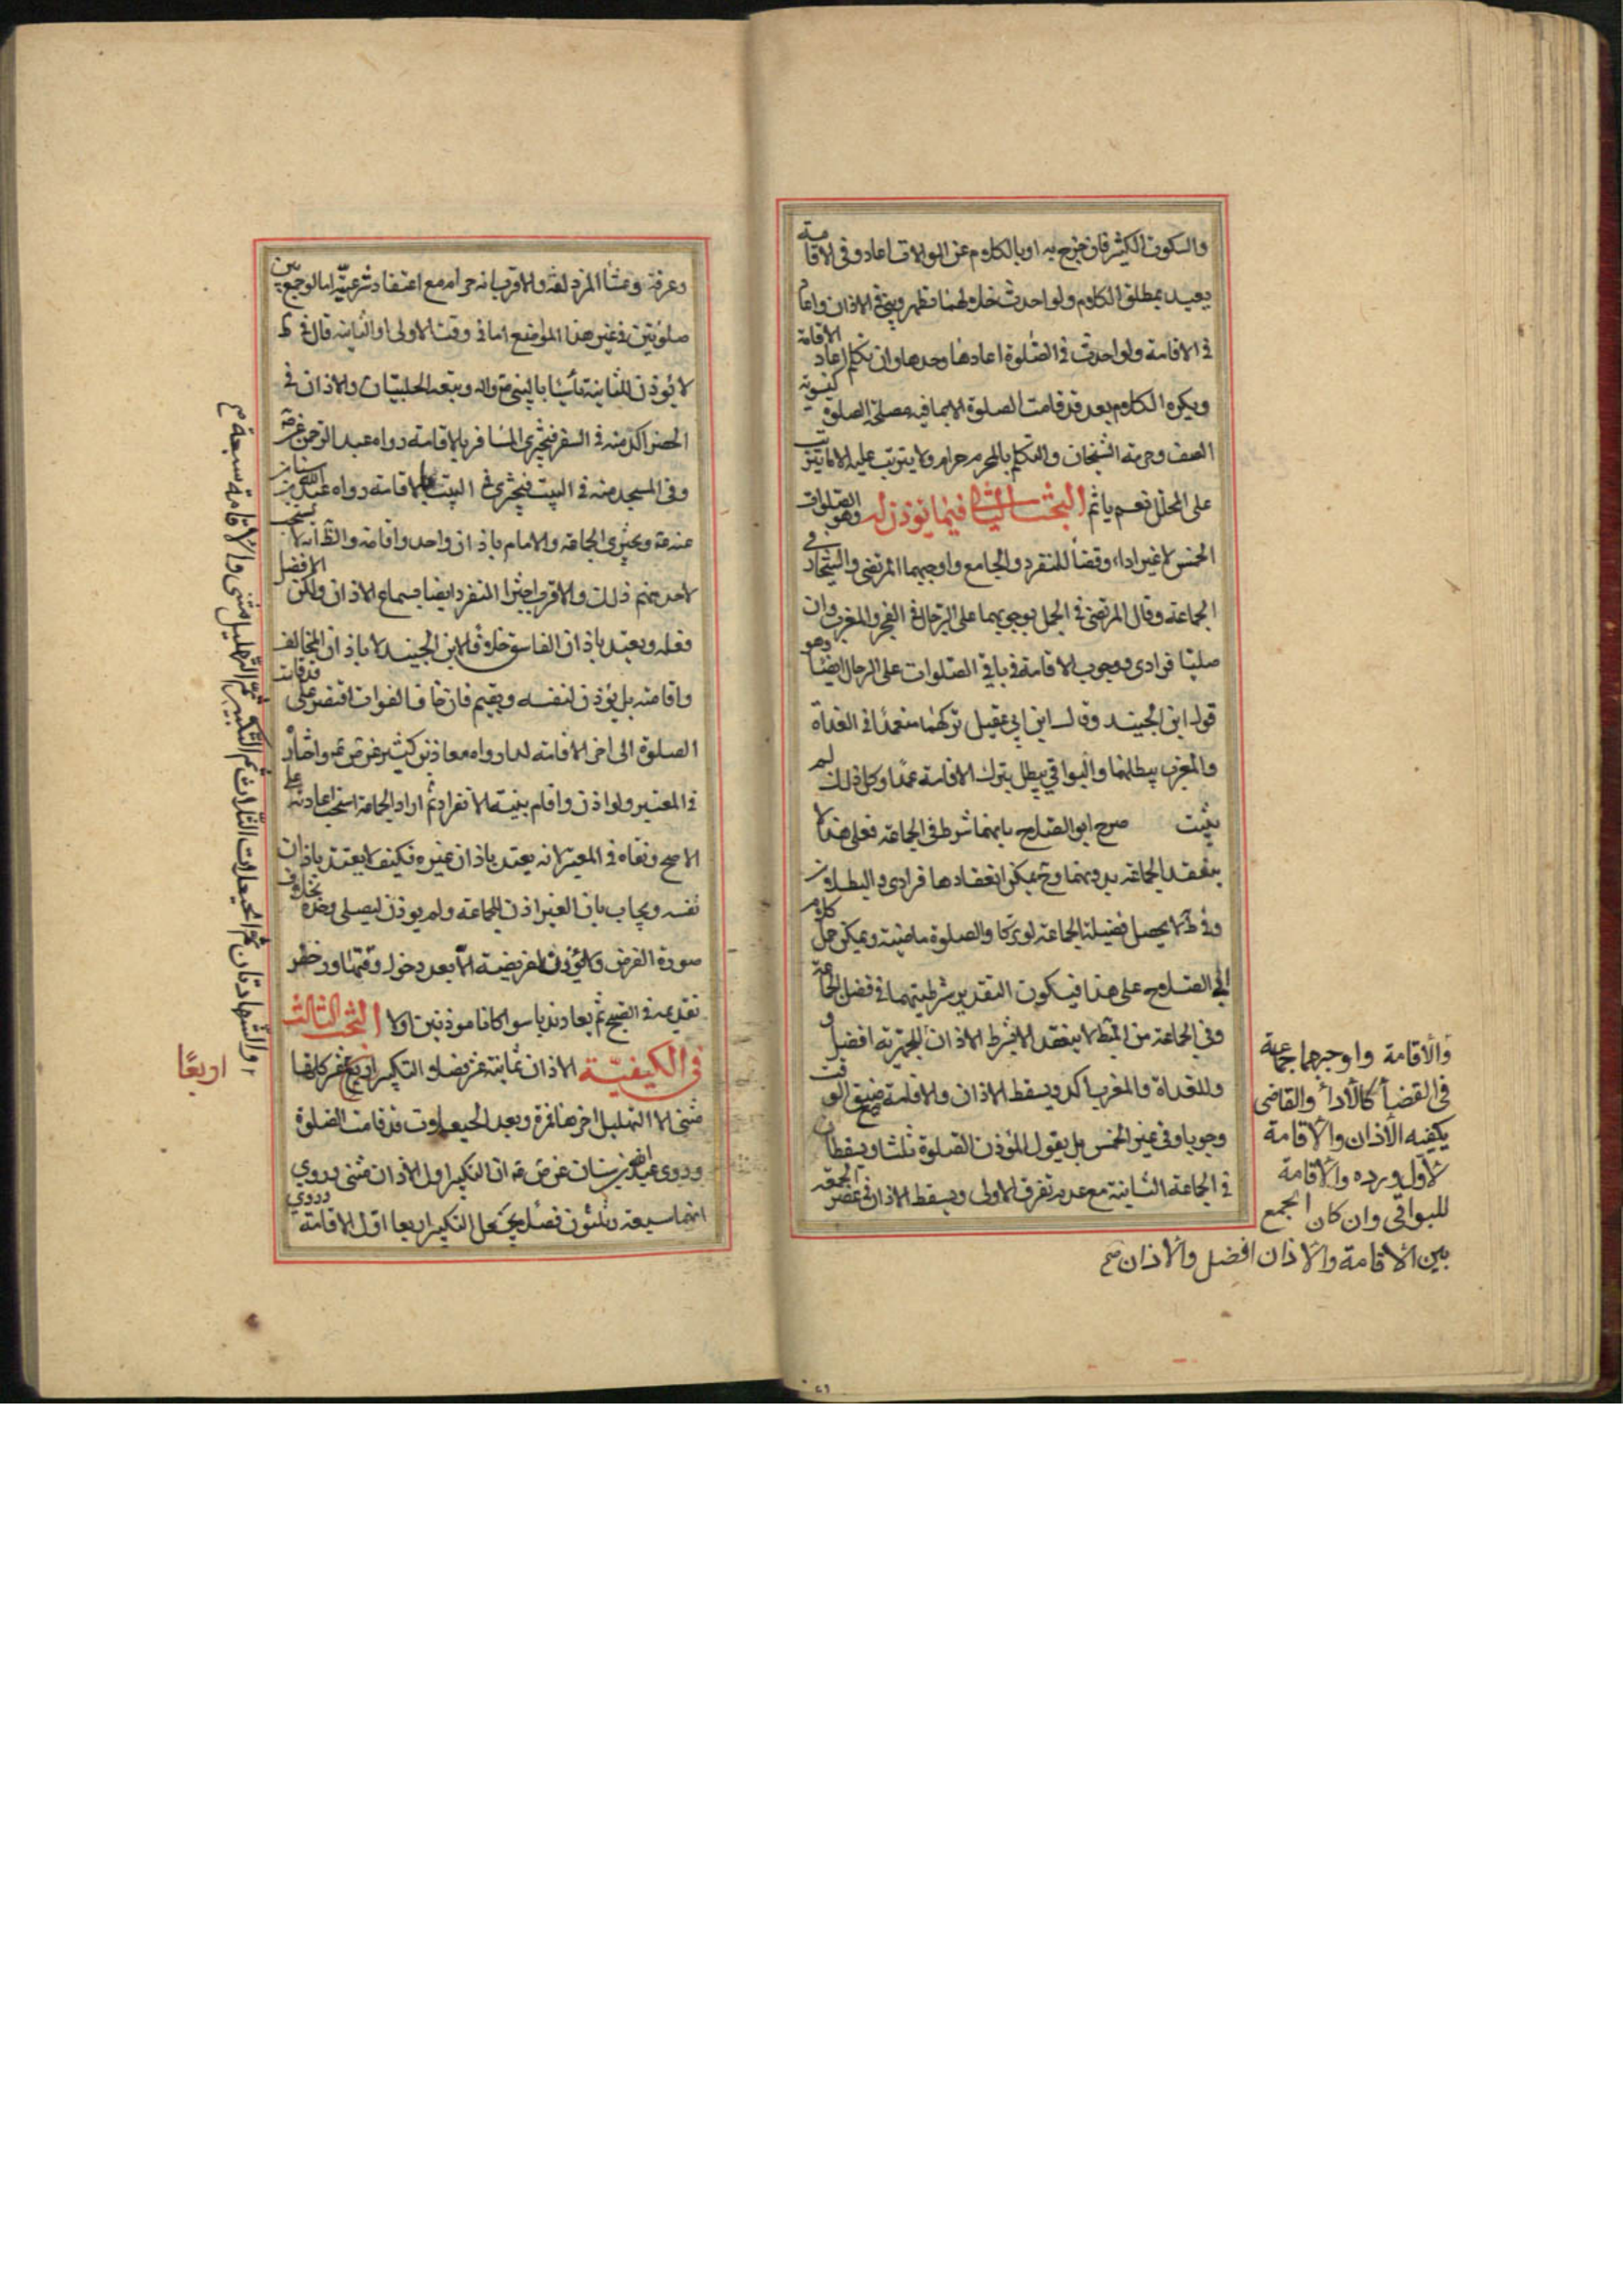 والسكوت الكثير فان خرج به او بالكلام عن الموالاة اعاد وفى الاقامة
يعيد بمطلق الكلام ولو احدث خلالهما تطهر وبنى فى الاذان واعاد
فى الاقامة ولو احدث فى الصلوة اعادها وحدها وان تكلم اعاد الاقامة
ويكره الكلام بعد قد قامت الصلوة الا بما فيه مصلحة الصلوة كتسوية
الصف وحرمه الشيخان والتكلم بالمحرم حرام ولا يترتب عليه الا ما يترتب
على المحلل نعم ياثم البحث الثانى فيما يؤذن له وهو الصلوات
الخمس لا غير اداء وقضاً للمنفرد والجامع واوجبهما المرتضى والشيخان فى
الجماعة وقال المرتضى فى الجمل بوجوبهما على الرجال فى الفجر والمغرب وان
صليتا فرادى ووجوب الاقامة فى باقى الصلوات على الرجال ايضاً وهو
قول ابن الجنيد وقال ابن ابى عقيل تركهما متعمدًا فى الغداة
والمغرب يبطلهما والبواقى يبطل بترك الاقامة عمدًا وكل ذلك لم
يثبت صرح ابو الصلاح بانهما شرط فى الجماعة فعلى هذا لا
ينعقد الجماعة بدونهما وح يمكن انعقادها فرادى والبطلان
وفى ط لا يحصل فضيلة الجماعة لو تركا والصلوة ماضية ويمكن حمل كلام
ابى الصلاح على هذا فيكون التقدير شرطيتهما فى فضل الجماعة
وفى الجماعة من المبط لا ينعقد الا بشرط الاذان للجهرية افضل و
وللغداة والمغرب اكد ويسقط الاذان والاقامة مع ضيق الوقت
وجوبا وفى غير الخمس بل يقول المؤذن الصلوة ثلثا ويسقطان
فى الجماعة الثانية مع عدم تفرق الاولى ويسقط الاذان فى عصر الجمعة
والاقامة واوجبهما جماعة
فى القضاً كالأداً والقاضى
يكفيه الأذان والأقامة
لأول ورده والأقامة
للبواقى وان كان الجمع
بين الأقامة والأذان افضل والأذان صح
وعرفة وعشأ المزدلفة والاقرب انه حرام مع اعتقاد شرعيته اما لو جمع بين
صلوتين فى غير هذا المواضع اما فى وقت الاولى او الثانية قال فى ط
لا يؤذن للثانية تأسيا بالنبى ص واله وتبعه الحلبيان والاذان فى
الحضر اكد منه فى السفر فيجزى المسافر بالاقامة رواه عبد الرحمن عن ص ع
وفى المسجد منه فى البيت فيجزى فى البيت بالاقامة رواه عبد الله بن سنان
عنه ع ويجزى الجماعة والامام باذان واحد واقامة والظاهر لا يستحب
لاحد منهم ذلك والاقرب اجتزا المنفرد ايضا بسماع الاذان ولكن الافضل
فعله ويعتد باذان الفاسق خلافا لابن الجنيد لا باذان المخالف
واقامته بل يؤذن لنفسه ويقيم فان خاف الفوات اقتصر على قد قامت
الصلوة الى اخر الاقامة لما رواه معاذ بن كثير عن ص ع واختار
فى المعتبر ولو اذن واقام بنية الانفراد ثم اراد الجماعة استحب اعادته على
الاصح ونفاه فى المعتبر لانه يعتد باذان غيره فكيف لا يعتد باذان
نفسه ويجاب بان الغير اذن للجماعة ولم يوذن ليصلى وحده بخلاف
صورة الفرض ولا يؤذن لفريضة الا بعد دخول وقتها ورخص
تقديمه فى الصبح ثم يعاد ندبا سوا كانا موذنين او لا البحث الثالث
فى الكيفية الاذان ثمانية عشر فصلا والتكبير اربع عشر كلها
مثنى الا التهليل اخرها فمرة وبعد الحيعلات قد قامت الصلوة
وروى عبد الله بن سنان عن ص ع ان التكبير اول الاذان مثنى وروي
انهما سبعة وثلثون فصلا يجعل التكبير اربعا اول الاقامة وروي
اربعًا
والشهادتان ثم الحيعلات الثلاث ثم التكبير ثم التهليل مثنى والاقامة سبعة